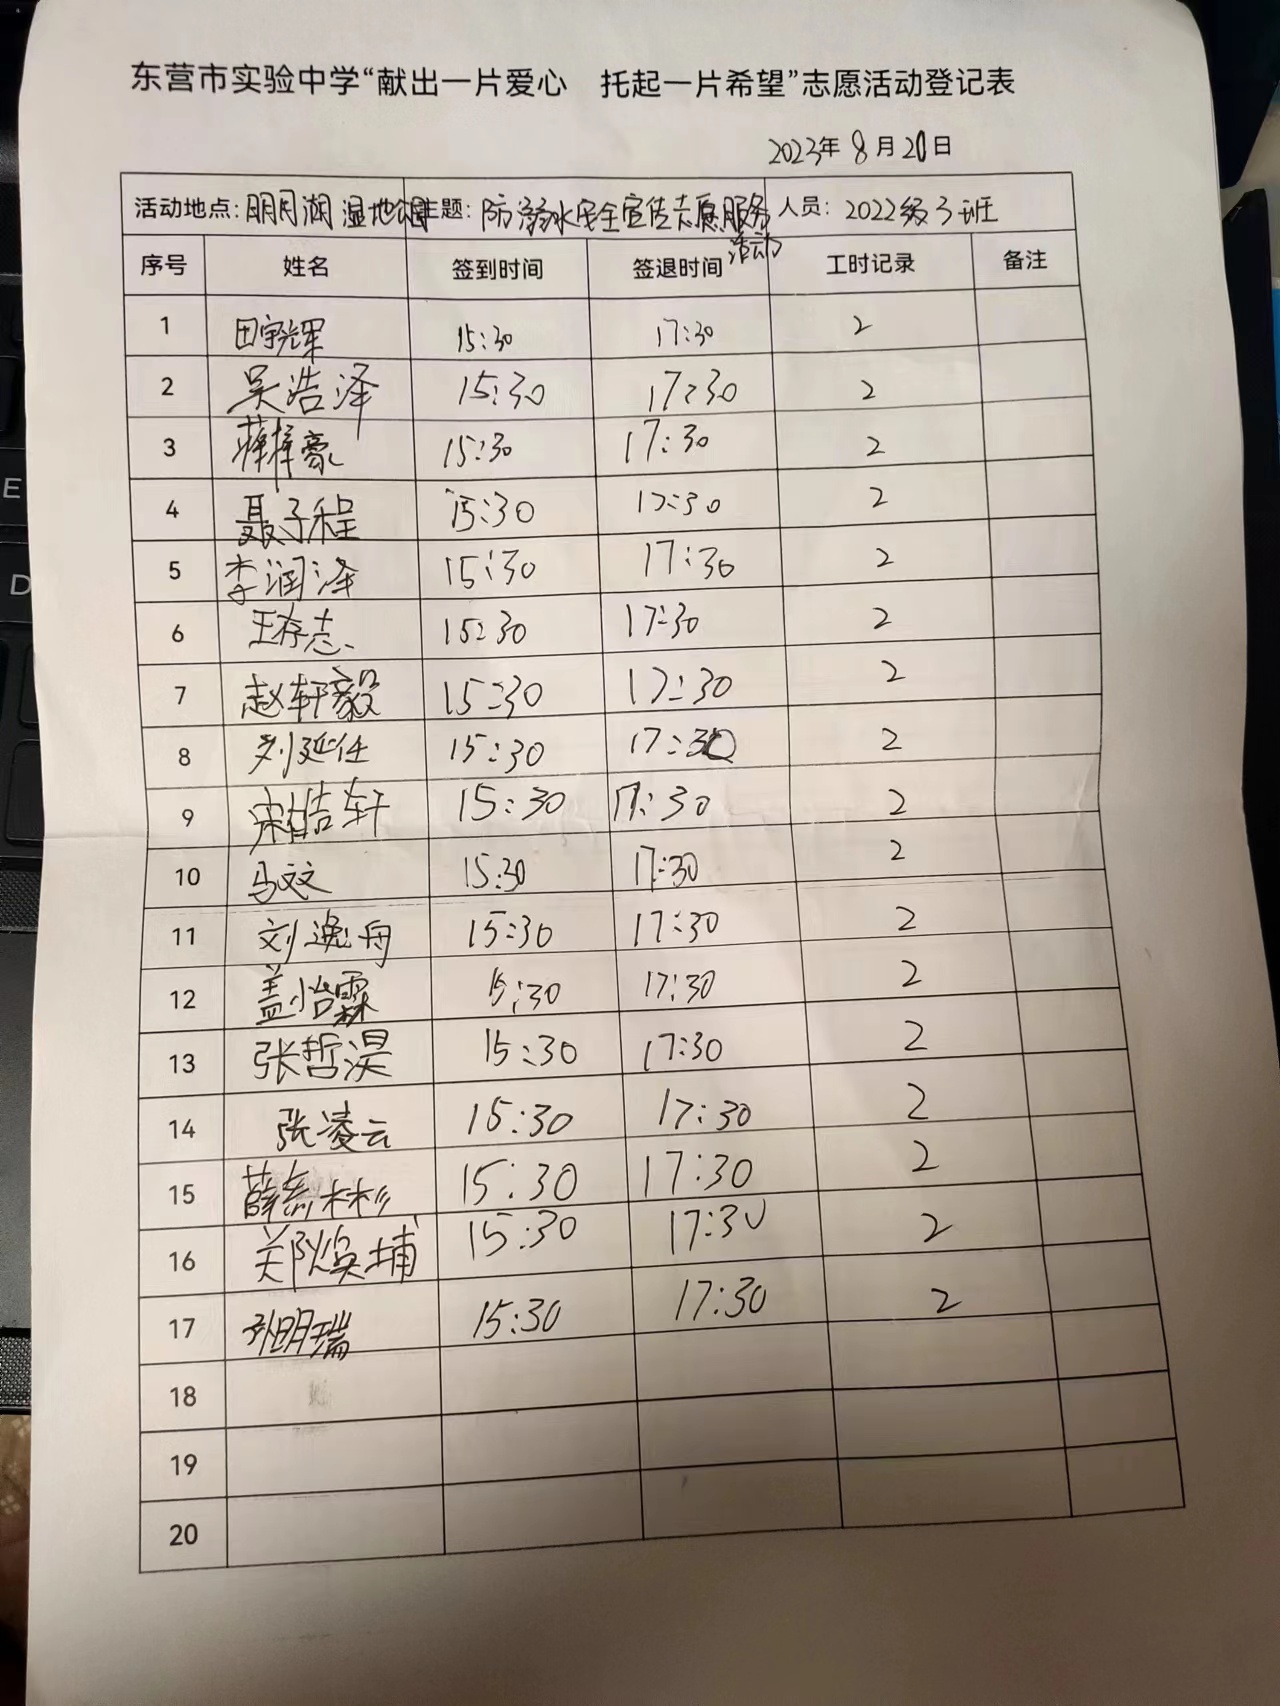 东营市实验中学“献出一片爱心 托起一片希望”志愿活动登记表
2023年8月20日
活动地点:明月湖湿地公园 主题:防溺水安全宣传志愿服务活动 人员:2022级3班
序号 姓名 签到时间 签退时间 工时记录 备注
1 田宇辉 15:30 17:30 2
2 吴浩泽 15:30 17:30 2
3 薛梓豪 15:30 17:30 2
4 聂子程 15:30 17:30 2
5 李润泽 15:30 17:30 2
6 王存志 15:30 17:30 2
7 赵轩毅 15:30 17:30 2
8 刘延任 15:30 17:30 2
9 宋皓轩 15:30 17:30 2
10 马文文 15:30 17:30 2
11 刘逸舟 15:30 17:30 2
12 盖怡霖 15:30 17:30 2
13 张哲淏 15:30 17:30 2
14 张凌云 15:30 17:30 2
15 薛彬杉 15:30 17:30 2
16 15:30 17:30 2
17 孙明瑞 15:30 17:30 2
18
19
20